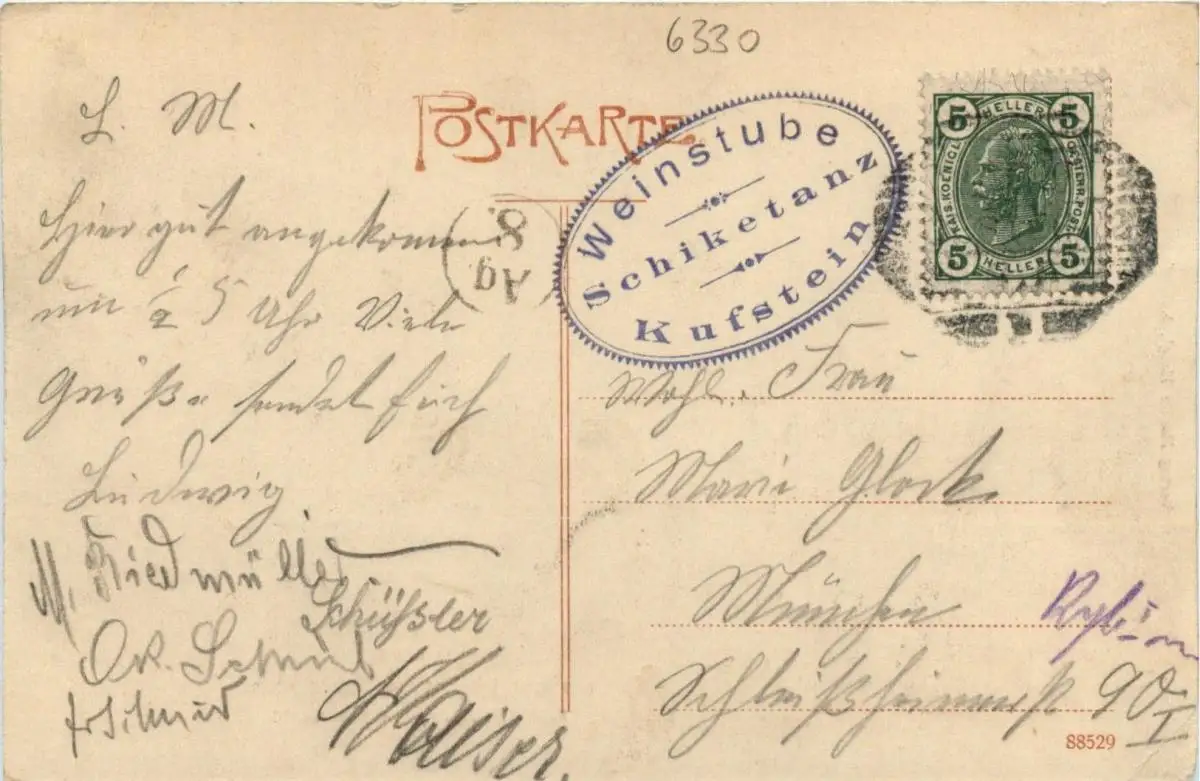 6330
POSTKARTE
Weinstube
Schiketanz
Kufstein
5 HELLER 5
KAIS. KOENIGL. OESTERR. POST
5 HELLER 5
8.
Ag
L. M.
Hier gut angekommen
um 1/2 5 Uhr Viele
Grüße sendet Euch
Ludwig
M. Riedmüller
Schüssler
Ok.
Wohl. Frau
Marie Glock
München
Schleißheimerst 90/I
88529